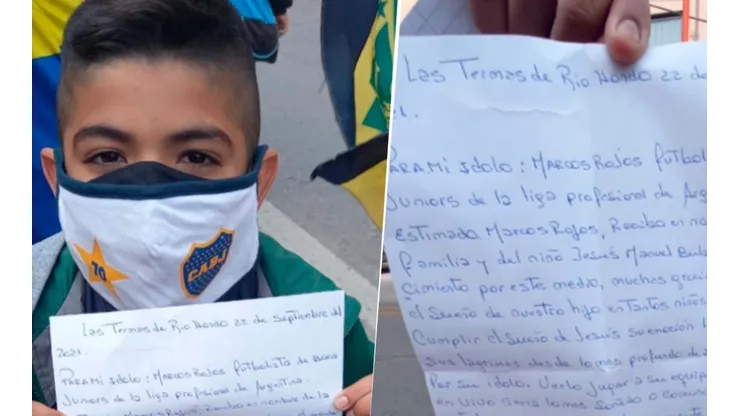 70
CABJ
Las Termas de Rio Hondo 22 de Septiembre del
2021.
PARA Mi idolo: MARCOS ROJOS futbolista de Boca
Juniors de la liga profesional de Argentina.
Las Termas de Rio Hondo 22 de
21.
PARA Mi idolo: MARCOS ROJOS futbolis
Juniors de la liga profesional de Argen
Estimado Marcos Rojos, Reciba en no
familia y del niño Jesus Manuel
cimiento por este medio, muchas graci
el sueño de nuestro hijo en tantos niños
Cumplir el sueño de Jesus su emoción
sus lagrimas desde lo mas profundo de
Por su idolo. Verlo jugar a su equip
en vivo seria lo mas